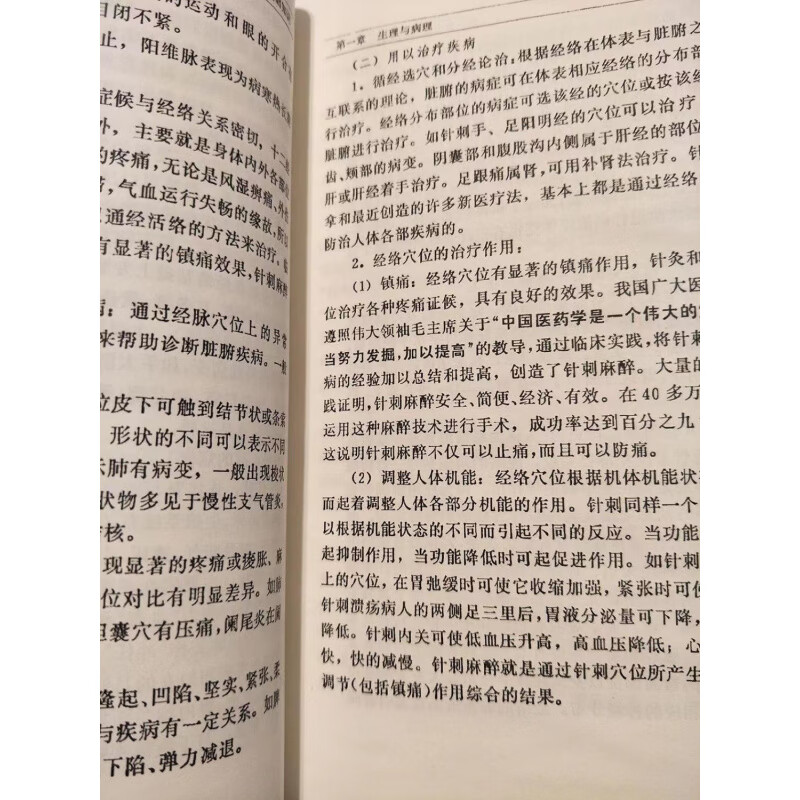 的运动和眼的开合
目闭不紧。
止，阳维脉表现为病寒热
症候与经络关系密切，十二
外，主要就是身体内外各部
的疼痛，无论是风湿痹痛、外伤
气血运行失畅的缘故，所以
通经活络的方法来治疗。临
有显著的镇痛效果，针刺麻醉
病：通过经脉穴位上的异常
来帮助诊断脏腑疾病。一般
位皮下可触到结节状或条索
形状的不同可以表示不同
示肺有病变，一般出现梭状
状物多见于慢性支气管炎，
核。
现显著的疼痛或痠胀、麻
位对比有明显差异。如肺
胆囊穴有压痛，阑尾炎在阑
隆起、凹陷、坚实、紧张、柔
与疾病有一定关系。如脾
下陷、弹力减退。
第一章 生理与病理
（二）用以治疗疾病
1．循经选穴和分经论治：根据经络在体表与脏腑之
互联系的理论，脏腑的病症可在体表相应经络的分布部
行治疗。经络分布部位的病症可选该经的穴位或按该经
脏腑进行治疗。如针刺手、足阳明经的穴位可以治疗
齿、颊部的病变。阴囊部和腹股沟内侧属于肝经的部位
肝或肝经着手治疗。足跟痛属肾，可用补肾法治疗。针
拿和最近创造的许多新医疗法，基本上都是通过经络
防治人体各部疾病的。
2．经络穴位的治疗作用：
（1）镇痛：经络穴位有显著的镇痛作用，针灸和
位治疗各种疼痛证候，具有良好的效果。我国广大医
遵照伟大领袖毛主席关于“中国医药学是一个伟大的
当努力发掘，加以提高”的教导，通过临床实践，将针
病的经验加以总结和提高，创造了针刺麻醉。大量的
践证明，针刺麻醉安全、简便、经济、有效。在40多万
运用这种麻醉技术进行手术，成功率达到百分之九
这说明针刺麻醉不仅可以止痛，而且可以防痛。
（2）调整人体机能：经络穴位根据机体机能状
而起着调整人体各部分机能的作用。针刺同样一个
以根据机能状态的不同而引起不同的反应。当功能
起抑制作用，当功能降低时可起促进作用。如针刺
上的穴位，在胃弛缓时可使它收缩加强，紧张时可使
针刺溃疡病人的两侧足三里后，胃液分泌量可下降，
降低。针刺内关可使低血压升高，高血压降低；心
快，快的减慢。针刺麻醉就是通过针刺穴位所产生
调节（包括镇痛）作用综合的结果。